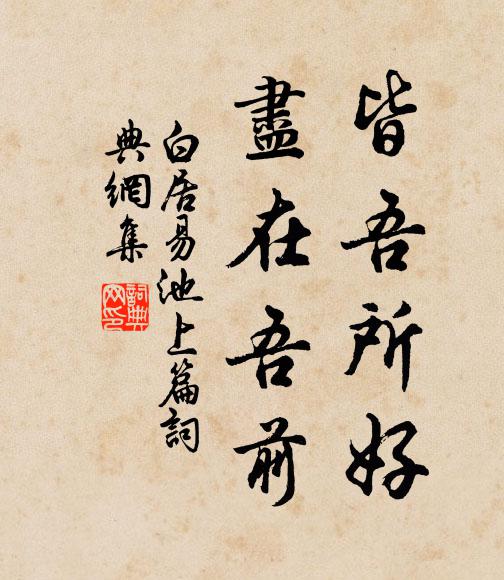 皆吾所好
盡在吾前
白居易池上篇詞
典網集
詞典
网印